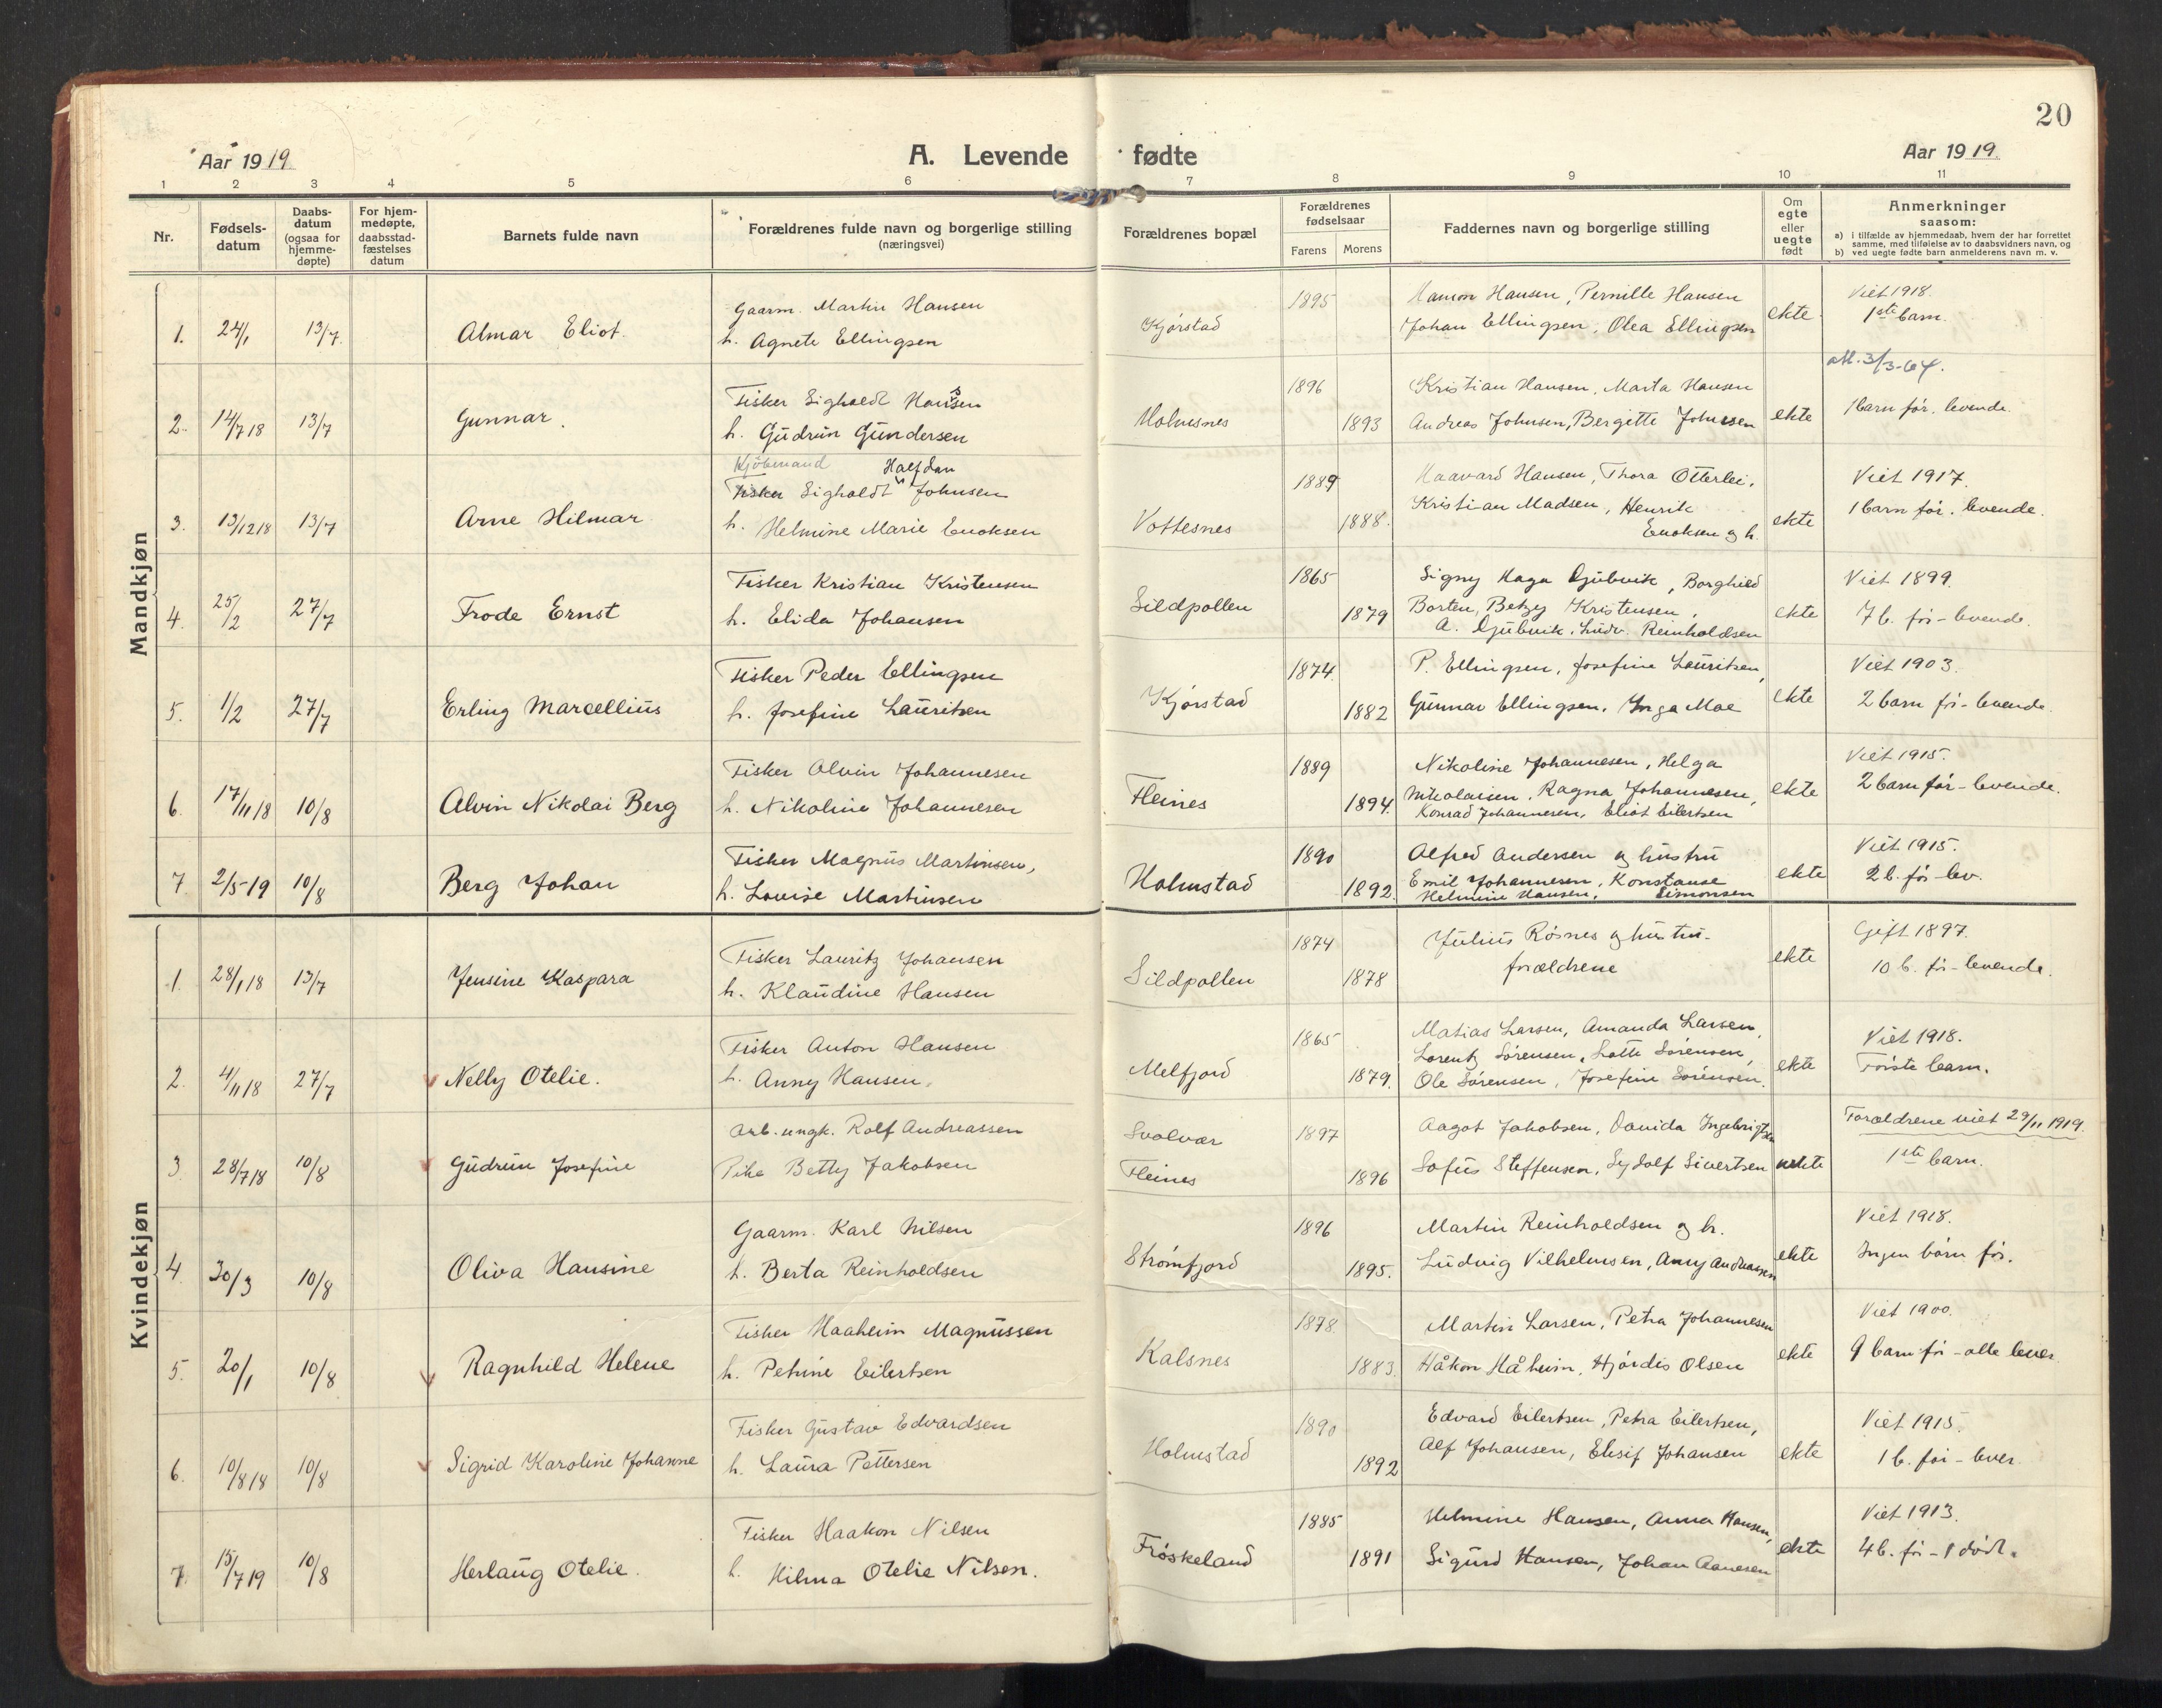 20
Aar 1919.
A. Levende fødte
Aar 1919.
1 2 3 4 5 6 7 8 9 10 11
Nr.
Fødsels-
datum
Daabs-
datum
(ogsaa for
hjemme-
døpte)
For hjem-
medøpte,
daabsstad-
fæstelses
datum
Barnets fulde navn
Forældrenes fulde navn og borgerlige stilling
(næringsvei)
Forældrenes bopæl
Forældrenes
fødselsaar
Farens Morens
Faddernes navn og borgerlige stilling
Om
egte
eller
uegte
født
Anmerkninger
saasom:
a) i tilfælde av hjemmedaab, hvem der har forrettet
samme, med tilføielse av to daabsvidners navn, og
b) ved uegte fødte barn anmelderens navn m. v.
Mandkjøn
1. 24/1 13/7 Almar Eliot.
Gaarm. Martin Hansen
h. Agnete Ellingsen
Kjørstad 1895
Hansen, Pernille Hansen
Johan Ellingsen, Olea Ellingsen
ekte
Viet 1918.
1ste barn.
att. 3/3-64.
2. 14/7 18 13/7 Gunnar.
Fisker Sigholdt Hansen
h. Gudrun Gundersen
Holmsnes 1896 1893
Kristian Hansen, Marta Hansen
Andreas Johnsen, Bergitte Johnsen
ekte
1 barn før. levende.
3. 13/12 18 13/7 Arne Hilmar
Kjøbmand Halfdan
Fisker Sigholdt Johnsen
h. Helmine Marie Enoksen
Vottesnes 1889 1888.
Haavard Hansen, Thora Otterlei,
Kristian Madsen, Henrik
Enoksen og h.
ekte
Viet 1917.
1 barn før. levende.
4. 25/2 27/7 Frode Ernst
Fisker Kristian Kristensen
h. Elida Johansen
Sildpollen 1865 1879
Signy Haga Djubvik, Borghild
Borten, Betzy Kristensen,
A. Djubvik, Ludv. Reinholdsen
ekte
Viet 1899.
7 b. før - levende.
5. 1/2 27/7 Erling Marcellius
Fisker Peder Ellingsen
h. Josefine Lauritsen
Kjørstad 1874. 1882
P. Ellingsen, Josefine Lauritsen,
Gunnar Ellingsen, Inga Moe
ekte
Viet 1903.
2 barn før - levende.
6. 17/11 18 10/8 Alvin Nikolai Berg
Fisker Alvin Johannesen
h. Nikoline Johannesen
Fleines 1889 1894.
Nikoline Johannesen, Helga
Nikolaisen, Ragna Johannesen,
Konrad Johannesen, Eliot Eilertsen
ekte
Viet 1915.
2 barn før - levende.
7 2/5 19 10/8 Berg Johan
Fisker Magnus Martinsen,
h. Lovise Martinsen
Holmstad 1890 1892.
Alfred Andersen og hustru
Emil Johannesen, Konstanse
Helmine Hansen, Simonsen
ekte
Viet 1915.
2 b. før lev.
Kvindekjøn
1. 28/1 18 13/7 Jensine Kaspara
Fisker Lauritz Johansen
h. Klaudine Hansen
Sildpollen 1874 1878
Julius Røsnes og hustru.
forældrene
ekte
Gift 1897.
10 b. før - levende.
2. 4/11 18 27/7 Nelly Otelie.
Fisker Anton Hansen
h. Anny Hansen.
Melfjord 1865 1879.
Matias Larsen, Amanda Larsen,
Lorentz Sørensen, Lotte Sørensen,
Ole Sørensen, Josefine Sørensen.
ekte
Viet 1918.
Første barn.
3. 28/7 18 10/8 Gudrun Josefine
Arb. ungk. Rolf Andreassen
Pike Betty Jakobsen
Svolvær
Fleines
1897 1896
Aagot Jakobsen, Davida Ingebrigtsen
Sofus Steffensen, Sydolf Sivertsen
uekte
Forældrene viet 29/11 1919.
1ste barn.
4. 30/3 10/8 Oliva Hansine
Gaarm. Karl Nilsen
h. Berta Reinholdsen
Strømfjord 1896 1895.
Martin Reinholdsen og h.
Ludvig Vilhelmsen, Anny Andreassen
ekte
Viet 1918.
Ingen børn før.
5. 20/1 10/8 Ragnhild Helene
Fisker Haaheim Magnussen
h. Petrine Eilertsen
Kalsnes 1878. 1883.
Martin Larsen, Petra Johannesen
Håkon Håheim, Hjørdis Olsen
ekte
Viet 1900.
9 barn før - alle lever.
6. 10/8 18 10/8 Sigrid Karoline Johanne
Fisker Gustav Edvardsen
h. Laura Pettersen
Holmstad 1890 1892
Edvard Eilertsen, Petra Eilertsen,
Alf Johansen, Elisif Johansen
ekte
Viet 1915.
1 b. før - lever.
7. 15/7 19 10/8 Herlaug Otelie.
Fisker Haakon Nilsen
h. Hilma Otelie Nilsen.
Frøskeland 1885 1891
Helmine Hansen, Anna Hansen,
Sigurd Hansen, Johan Aanesen
ekte
Viet 1913.
4 b. før - 1 død.